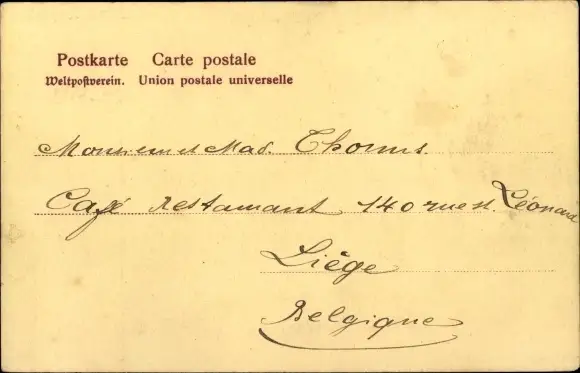 Postkarte Carte postale
Weltpostverein. Union postale universelle
Monsieur et Mad. Thonus.
Café restaurant 140 rue st. Léonard
Liège
Belgique